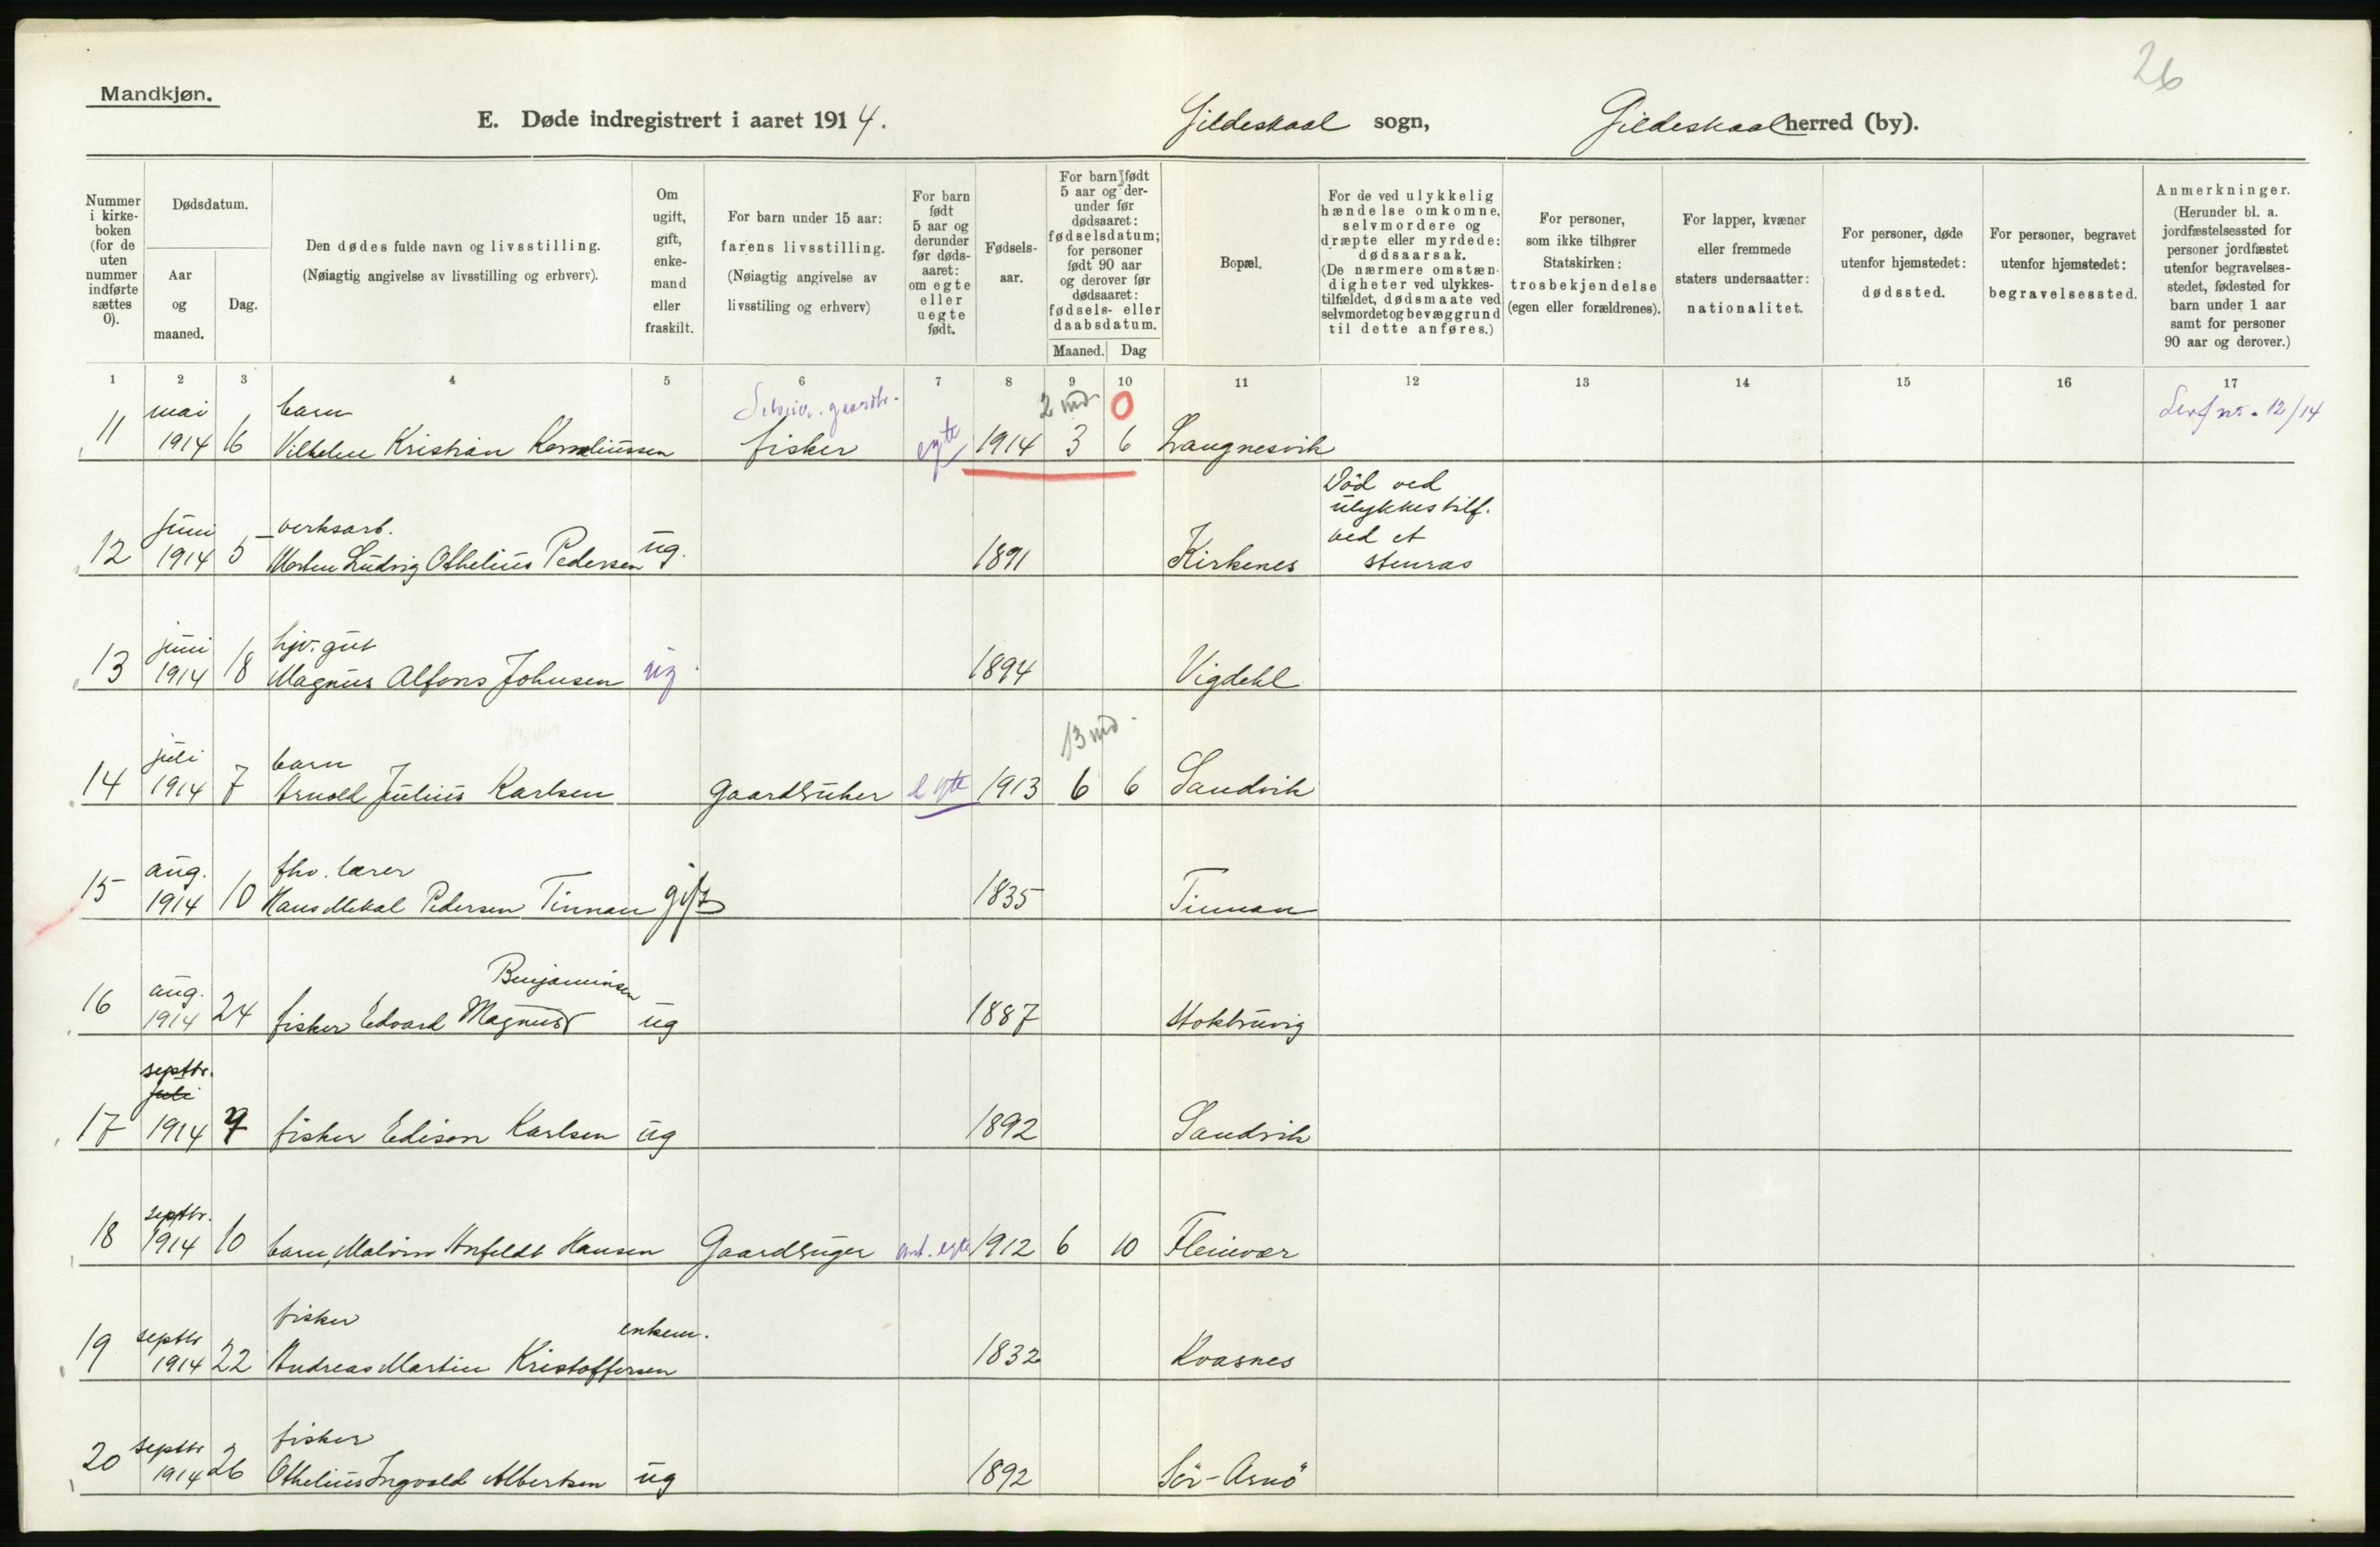 26
Mandkjøn.
E. Døde indregistrert i aaret 1914.
Gildeskaal sogn,
Gildeskaal herred (by).
Nummer i kirke-boken (for de uten nummer indførte sættes 0).
Dødsdatum.
Aar og maaned.
Dag.
Den dødes fulde navn og livsstilling.
(Nøiagtig angivelse av livsstilling og erhverv).
Om ugift, gift, enke-mand eller fraskilt.
For barn under 15 aar:
farens livsstilling.
(Nøiagtig angivelse av livsstiling og erhverv)
For barn født 5 aar og derunder før døds-aaret: om egte eller uegte født.
Fødsels-aar.
For barn født 5 aar og der-under før dødsaaret: fødselsdatum; for personer født 90 aar og derover før dødsaaret: fødsels- eller daabsdatum.
Maaned. Dag
Bopæl.
For de ved ulykkelig hændelse omkomne, selvmordere og dræpte eller myrdede: dødsaarsak.
(De nærmere omstæn-digheter ved ulykkes-tilfældet, dødsmaate ved selvmordet og bevæggrund til dette anføres.)
For personer, som ikke tilhører Statskirken: trosbekjendelse (egen eller forældrenes).
For lapper, kvæner eller fremmede staters undersaatter: nationalitet.
For personer, døde utenfor hjemstedet: dødssted.
For personer, begravet utenfor hjemstedet: begravelsessted.
Anmerkninger.
(Herunder bl. a. jordfæstelsessted for personer jordfæstet utenfor begravelses-stedet, fødested for barn under 1 aar samt for personer 90 aar og derover.)
1 2 3 4 5 6 7 8 9 10 11 12 13 14 15 16 17
mai barn 2 md. 0 12/14
11 1914 16 Vilhelm Kristian Korneliussen fisker egte 1914 3 6 Langnesvik
Död ved
ulykkestilf.
juni verksarb. ved et
12 1914 5 Morten Ludvig Othelius Pedersen ug. 1891 Kirkenes stenras
juni hjv. gut
13 1914 18 Magnus Alfons Johnsen ug. 1894 Vigdehl
13 md.
juli barn
14 1914 7 Arnold Julius Karlsen gaardbruker egte 1913 6 6 Sandvik
aug. fhv. lærer
15 1914 10 Hans Mikal Pedersen Tinnan gift 1835 Tinnan
Benjaminsen
16 aug. 1914 24 fisker Edvard Magnus ug 1887
septbr.
juli
17 1914 9 fisker Edison Karlsen ug 1892 Sandvik
septbr.
18 1914 10 barn, Malvin Hansen Gaardbruger egte 1912 6 10 Fleinvær
septbr fisker enkem.
19 1914 22 Andreas Martin Kristoffersen 1832 Kvasnes
septbr fisker
20 1914 26 Othelius Ingvald Albertsen ug 1892 Sör-Arnö